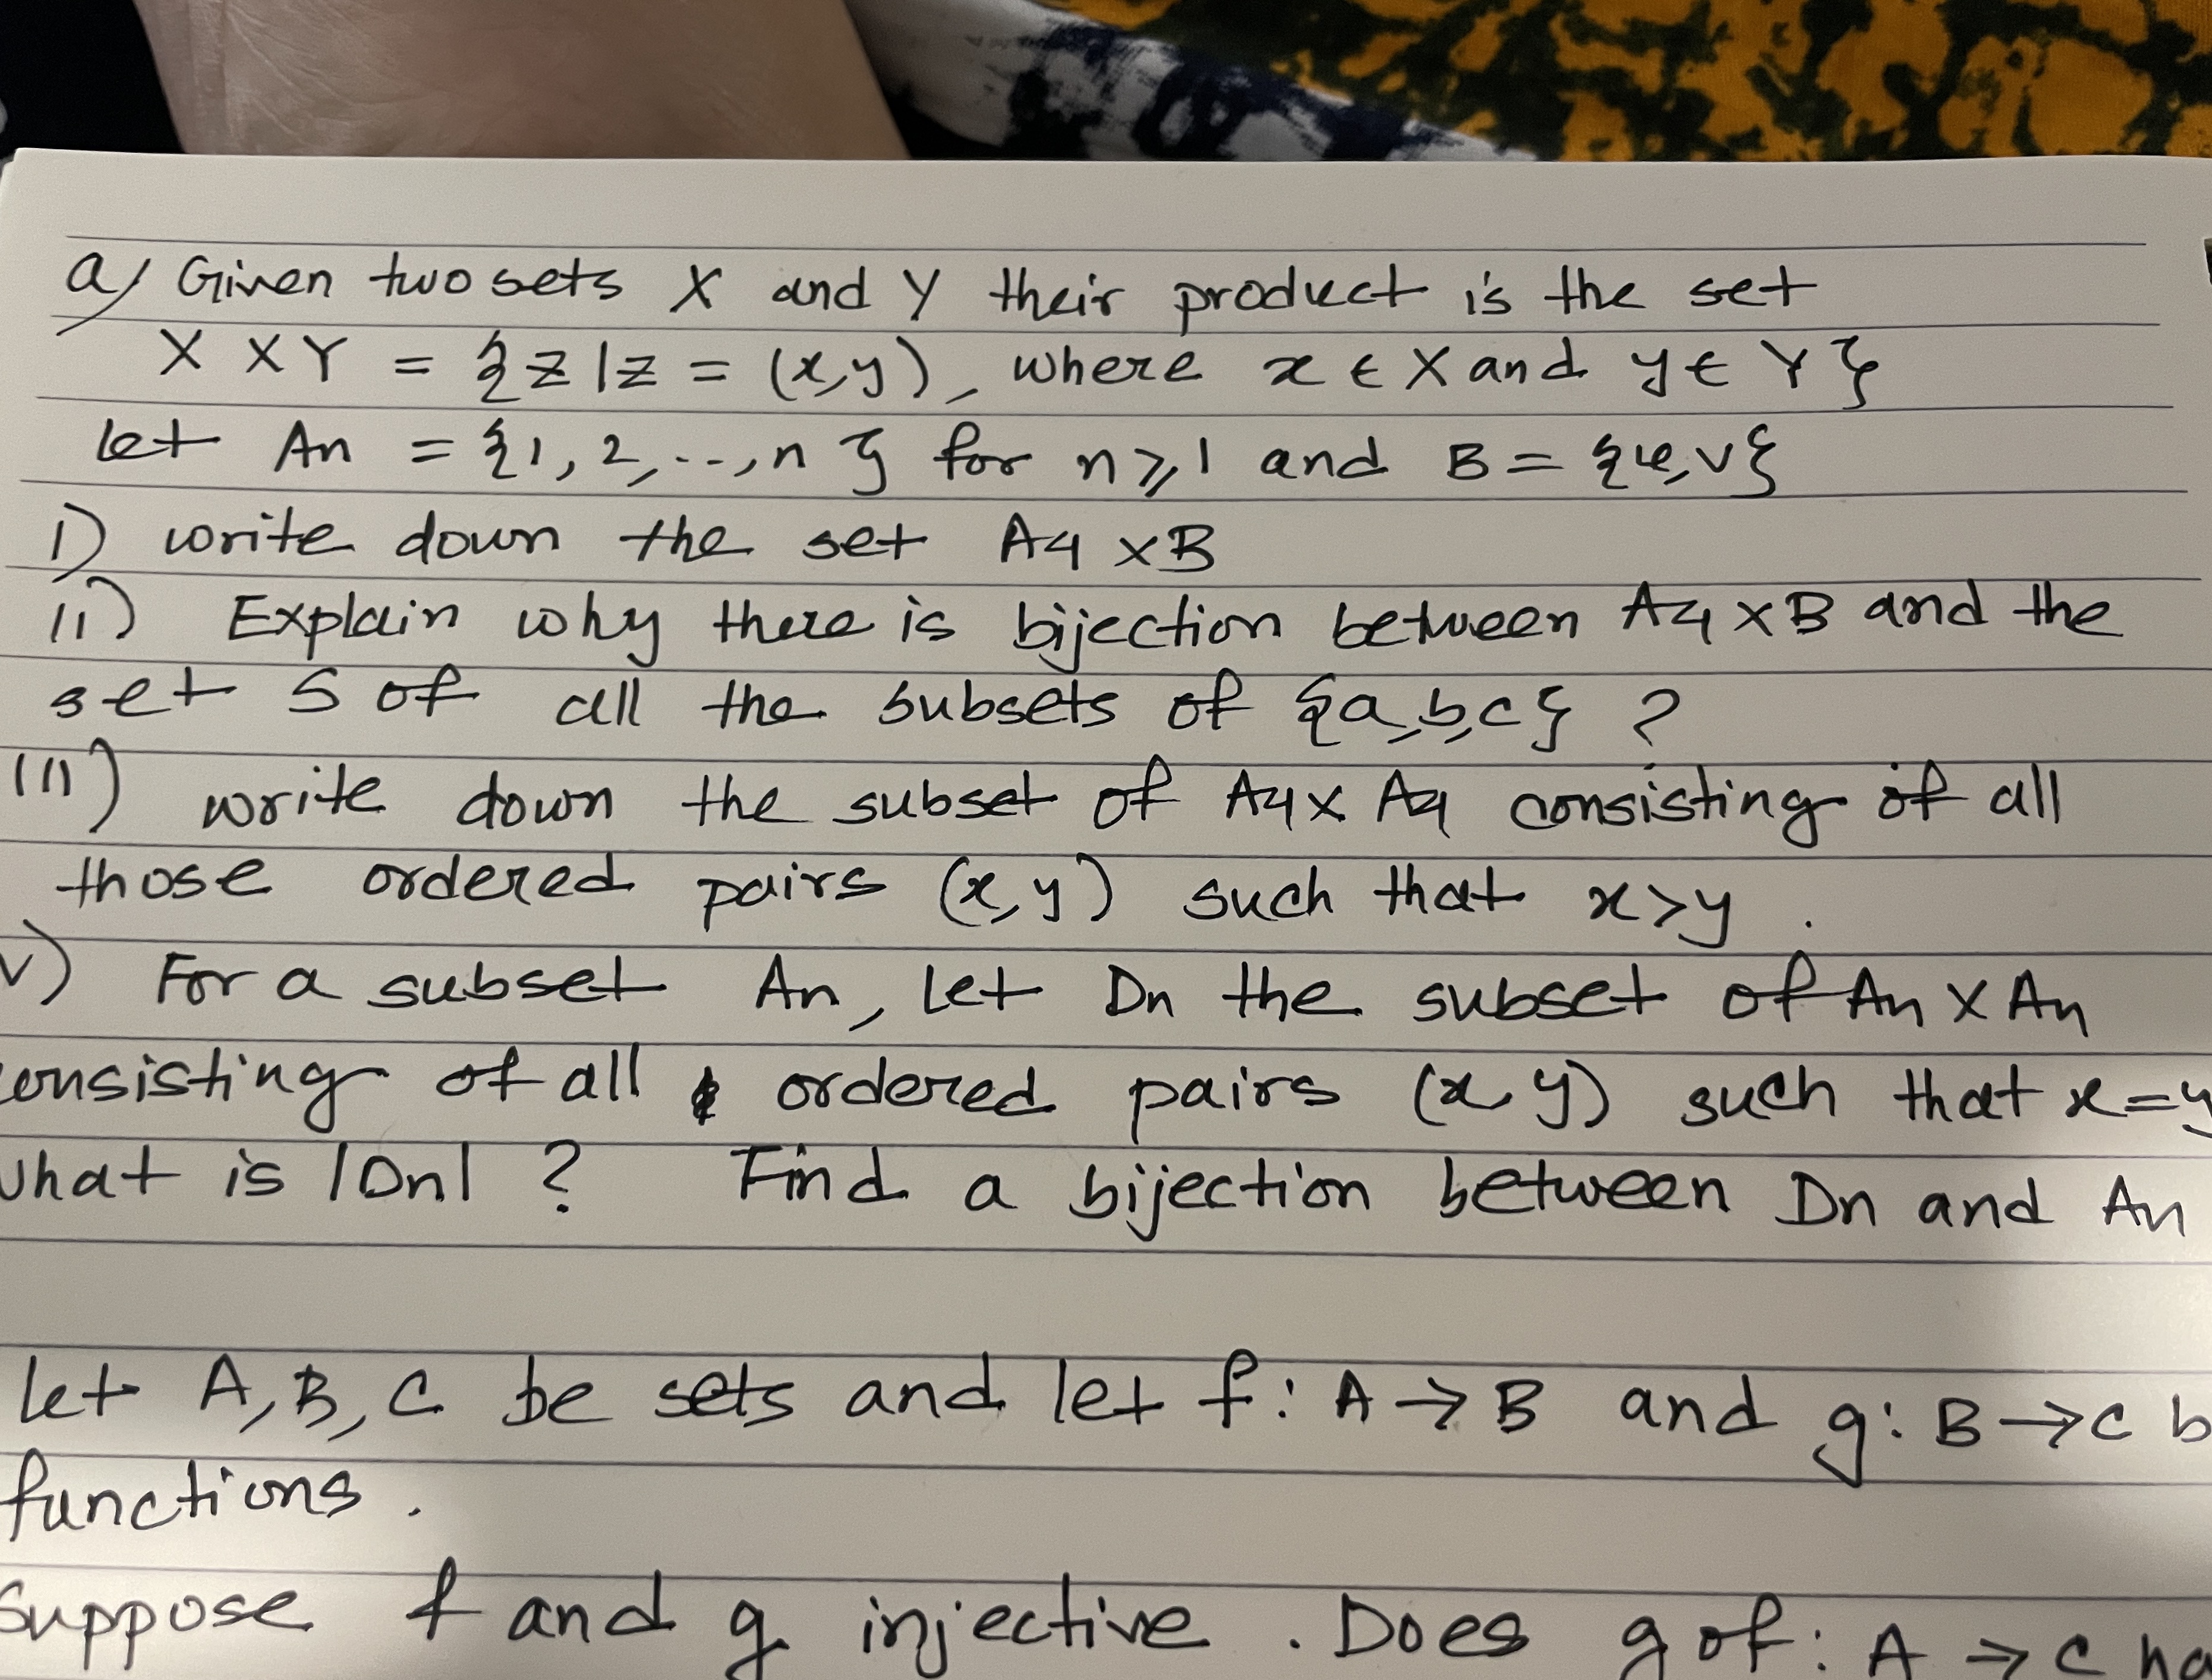 a) Given two sets X and Y their product is the set
X X Y = {z | z = (x,y), where x ∈ X and y ∈ Y}
let An = {1, 2, ..., n} for n ≥ 1 and B = {u,v}
i) write down the set A4 x B
ii) Explain why there is bijection between A4 x B and the
set S of all the subsets of {a,b,c} ?
iii) write down the subset of A4 x A4 consisting of all
those ordered pairs (x,y) such that x>y .
v) For a subset An, Let Dn the subset of An X An
onsisting of all ordered pairs (x,y) such that x=y
what is |Dn| ? Find a bijection between Dn and An
let A, B, C be sets and let f: A → B and g: B → C b
functions .
Suppose f and g injective . Does gof: A → C ha